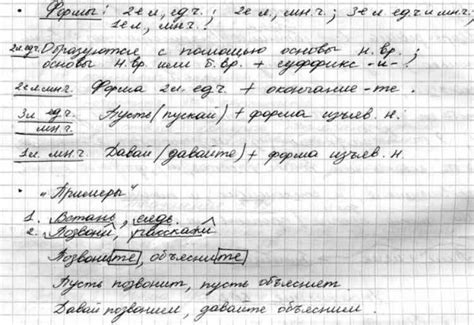 • Формы: 2е л, ед.ч.; 2е л., мн.ч.; 3е л. ед.ч и мн.ч;
1е л., мн.ч.!
2л. ед. Образуются с помощью основы н.вр.;
основы н.вр. или б.вр. + суффикс -и-!
2е л мн.ч. Форма 2л. ед.ч + окончание -те.
3л ед.ч. Пусть (пускай) + форма изъяв. н.
мн.ч.
1л. мн.ч. Давай (давайте) + форма изъяв. н
• "Примеры"
1. Встань, сядь.
2. Позвони, расскажи
Позвоните, объясните
Пусть позвонит, пусть объяснет.
Давай позвоним, давайте объясним.